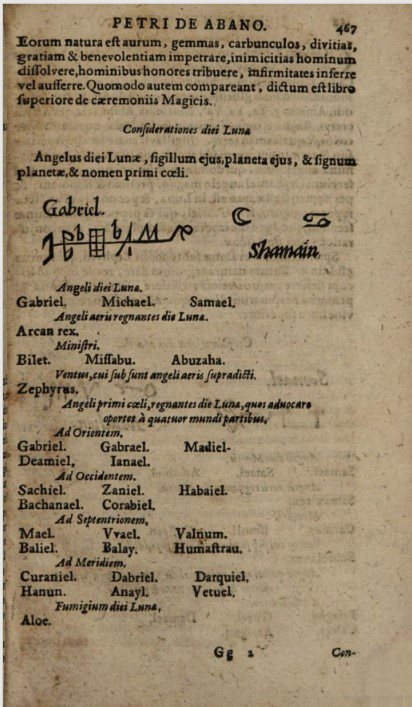 PETRI DE ABANO. 467
Eorum natura est aurum, gemmas, carbunculos, divitias,
gratiam & benevolentiam impetrare, inimicitias hominum
dissolvere, hominibus honores tribuere, infirmitates inferre
vel aufferre. Quomodo autem compareant, dictum est libro
superiore de cæremoniis Magicis.
Considerationes diei Lunæ
Angelus diei Lunæ, sigillum ejus, planeta ejus, & signum
planetæ, & nomen primi cœli.
Gabriel. ☾ ♋
Shamain.
Angeli diei Lunæ.
Gabriel. Michael. Samael.
Angeli aeris regnantes die Lunæ.
Arcan rex.
Ministri.
Bilet. Missabu. Abuzaha.
Ventus, cui subsunt angeli aeris supradicti.
Zephyrus.
Angeli primi cœli, regnantes die Lunæ, quos advocare
oportet à quatuor mundi partibus.
Ad Orientem.
Gabriel. Gabrael. Madiel-
Deamiel, Ianael.
Ad Occidentem.
Sachiel. Zaniel. Habaiel.
Bachanael. Corabiel.
Ad Septentrionem,
Mael. Vvael. Valnum.
Baliel. Balay. Humastrau.
Ad Meridiem.
Curaniel. Dabriel. Darquiel,
Hanun. Anayl. Vetuel.
Fumigium diei Lunæ,
Aloe.
Gg 2 Con-